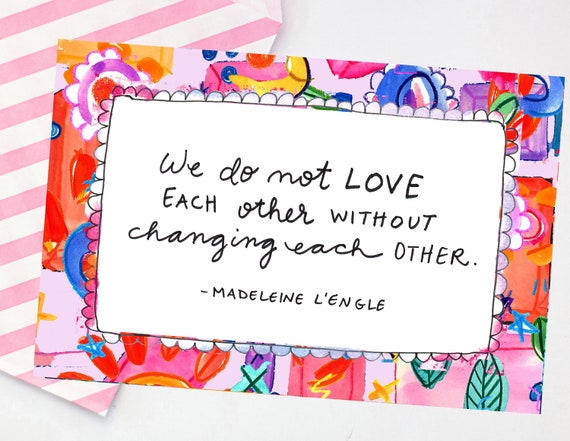 We do not LOVE
EACH other WITHOUT
changing each OTHER.
-MADELEINE L'ENGLE